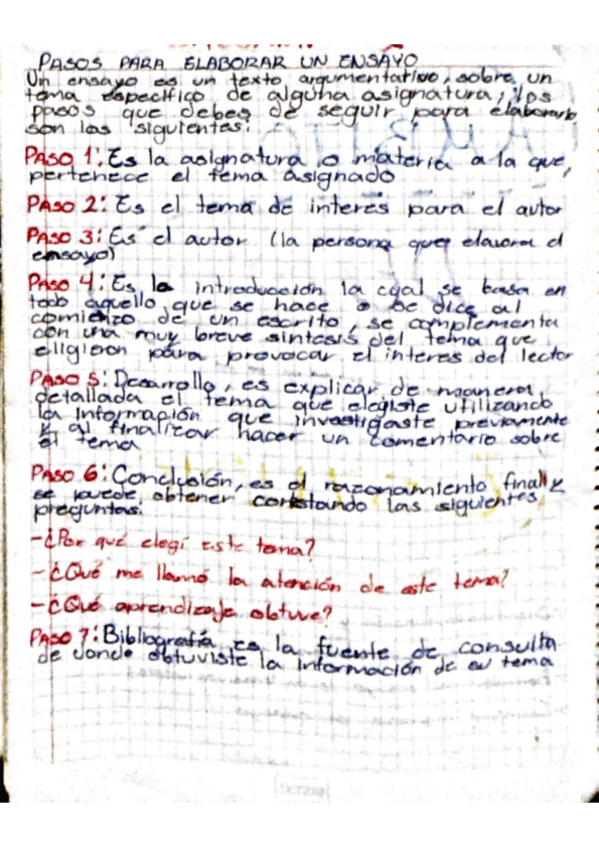 PASOS PARA ELABORAR UN ENSAYO
Un ensayo es un texto argumentativo, sobre un
tema específico de alguna asignatura, los
pasos que debes de seguir para elaborarlo
son las siguientes:
PASO 1: Es la asignatura o materia a la que,
pertenece el tema asignado
PASO 2: Es el tema de interés para el autor
PASO 3: Es el autor (la persona que elavora el
ensayo)
PASO 4: Es la introducción la cual se basa en
todo aquello que se hace o se dice al
comienzo de un escrito, se complementa
con una muy breve sintesis del tema que
elligieron para provocar el interes del lector
PASO 5: Desarrollo, es explicar de manera
detallada el tema que elegiste utilizando
la información que investigaste previamente
y al finalizar hacer un comentario sobre
el tema
PASO 6: Conclusión, es el razonamiento final y
se puede obtener contstando las siguientes
preguntas:
-¿Por qué elegí este tema?
-¿Qué me llamó la atención de este tema?
-¿Qué aprendizaje obtuve?
PASO 7: Bibliografía es la fuente de consulta
de donde obtuviste la información de su tema